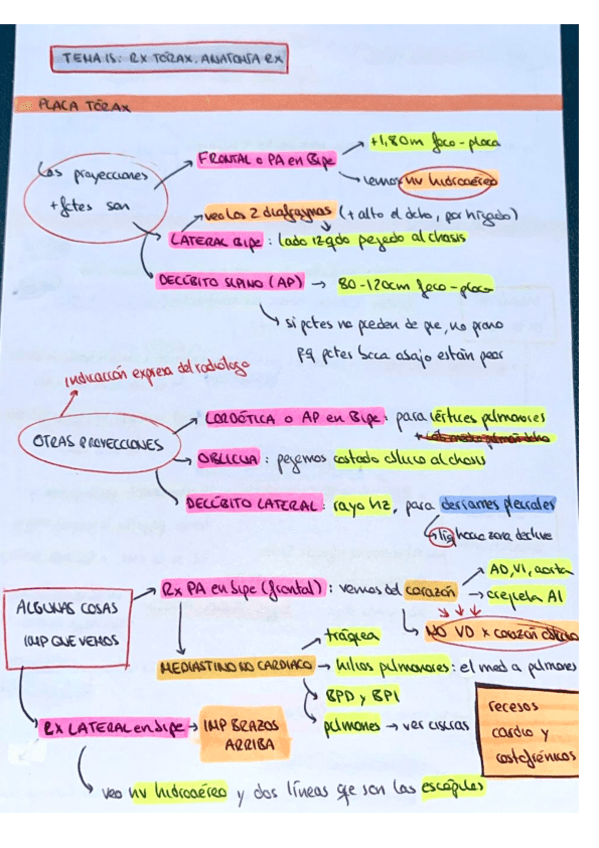 TEMA 15: RX TÓRAX. ANATOMÍA RX
PLACA TÓRAX
Las proyecciones
+ fctes son
FRONTAL o PA en Bipe
+1,80m foco-placa
vemos nv hidroaéreo
veo los 2 diafragmas (+ alto el dcho, por hígado)
LATERAL Bipe: lado izqdo pegado al chasis
DECÚBITO SUPINO (AP) → 80-120cm foco-placa
si pctes no pueden de pie, no prono
pq pctes boca abajo están peor
indicación expresa del radiólogo
OTRAS PROYECCIONES
LORDÓTICA o AP en Bipe: para vértices pulmonares
OBLICUA: pegamos costado oblicuo al chasis
DECÚBITO LATERAL: rayo hz, para derrames pleurales
líq hacia zona declive
ALGUNAS COSAS
IMP QUE VEMOS
Rx PA en bipe (frontal): vemos del corazón
AD, VI, aorta
orejuela AI
NO VD x corazón oblicuo
MEDIASTINO NO CARDIACO
tráquea
hilios pulmonares: el med a pulmones
BPD y BPI
pulmones → ver cisuras
recesos
cardio y
costofrénicos
RX LATERAL en bipe → IMP BRAZOS
ARRIBA
veo nv hidroaéreo y dos líneas que son las escápulas